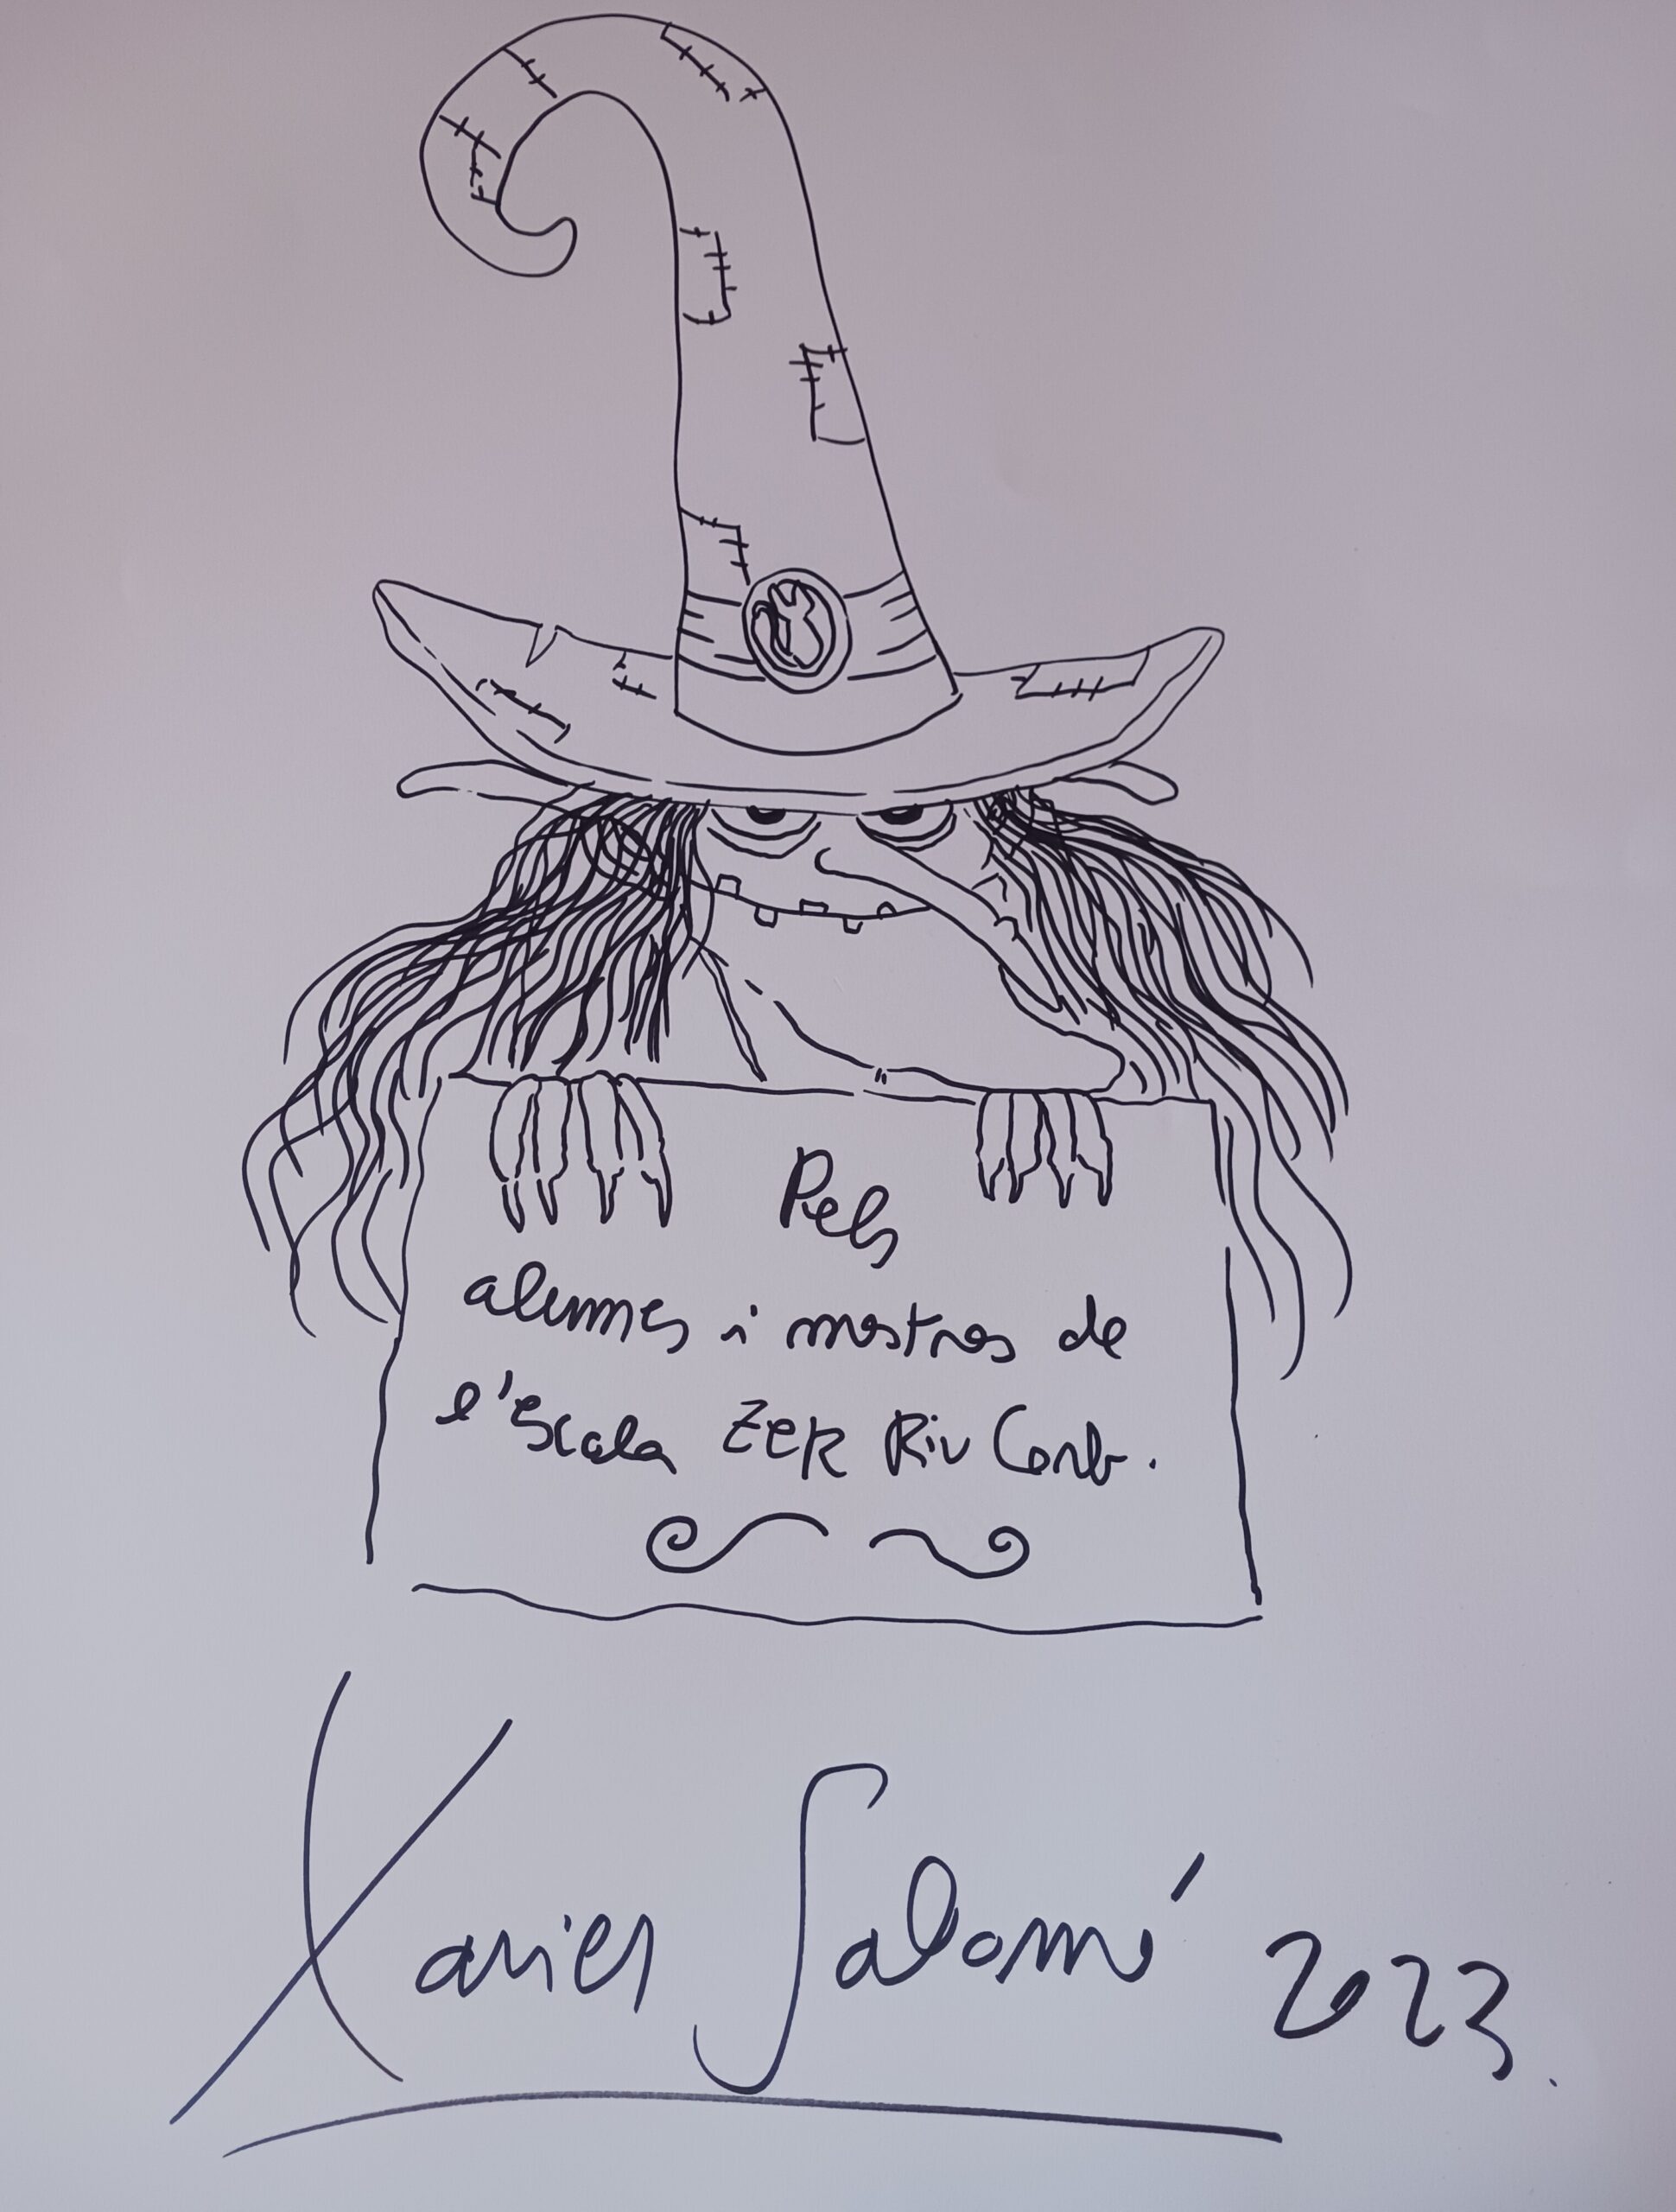 Pels
alumnes i mestres de
l'Escola ZER Riu Corb.
Xavier Salomó 2023.